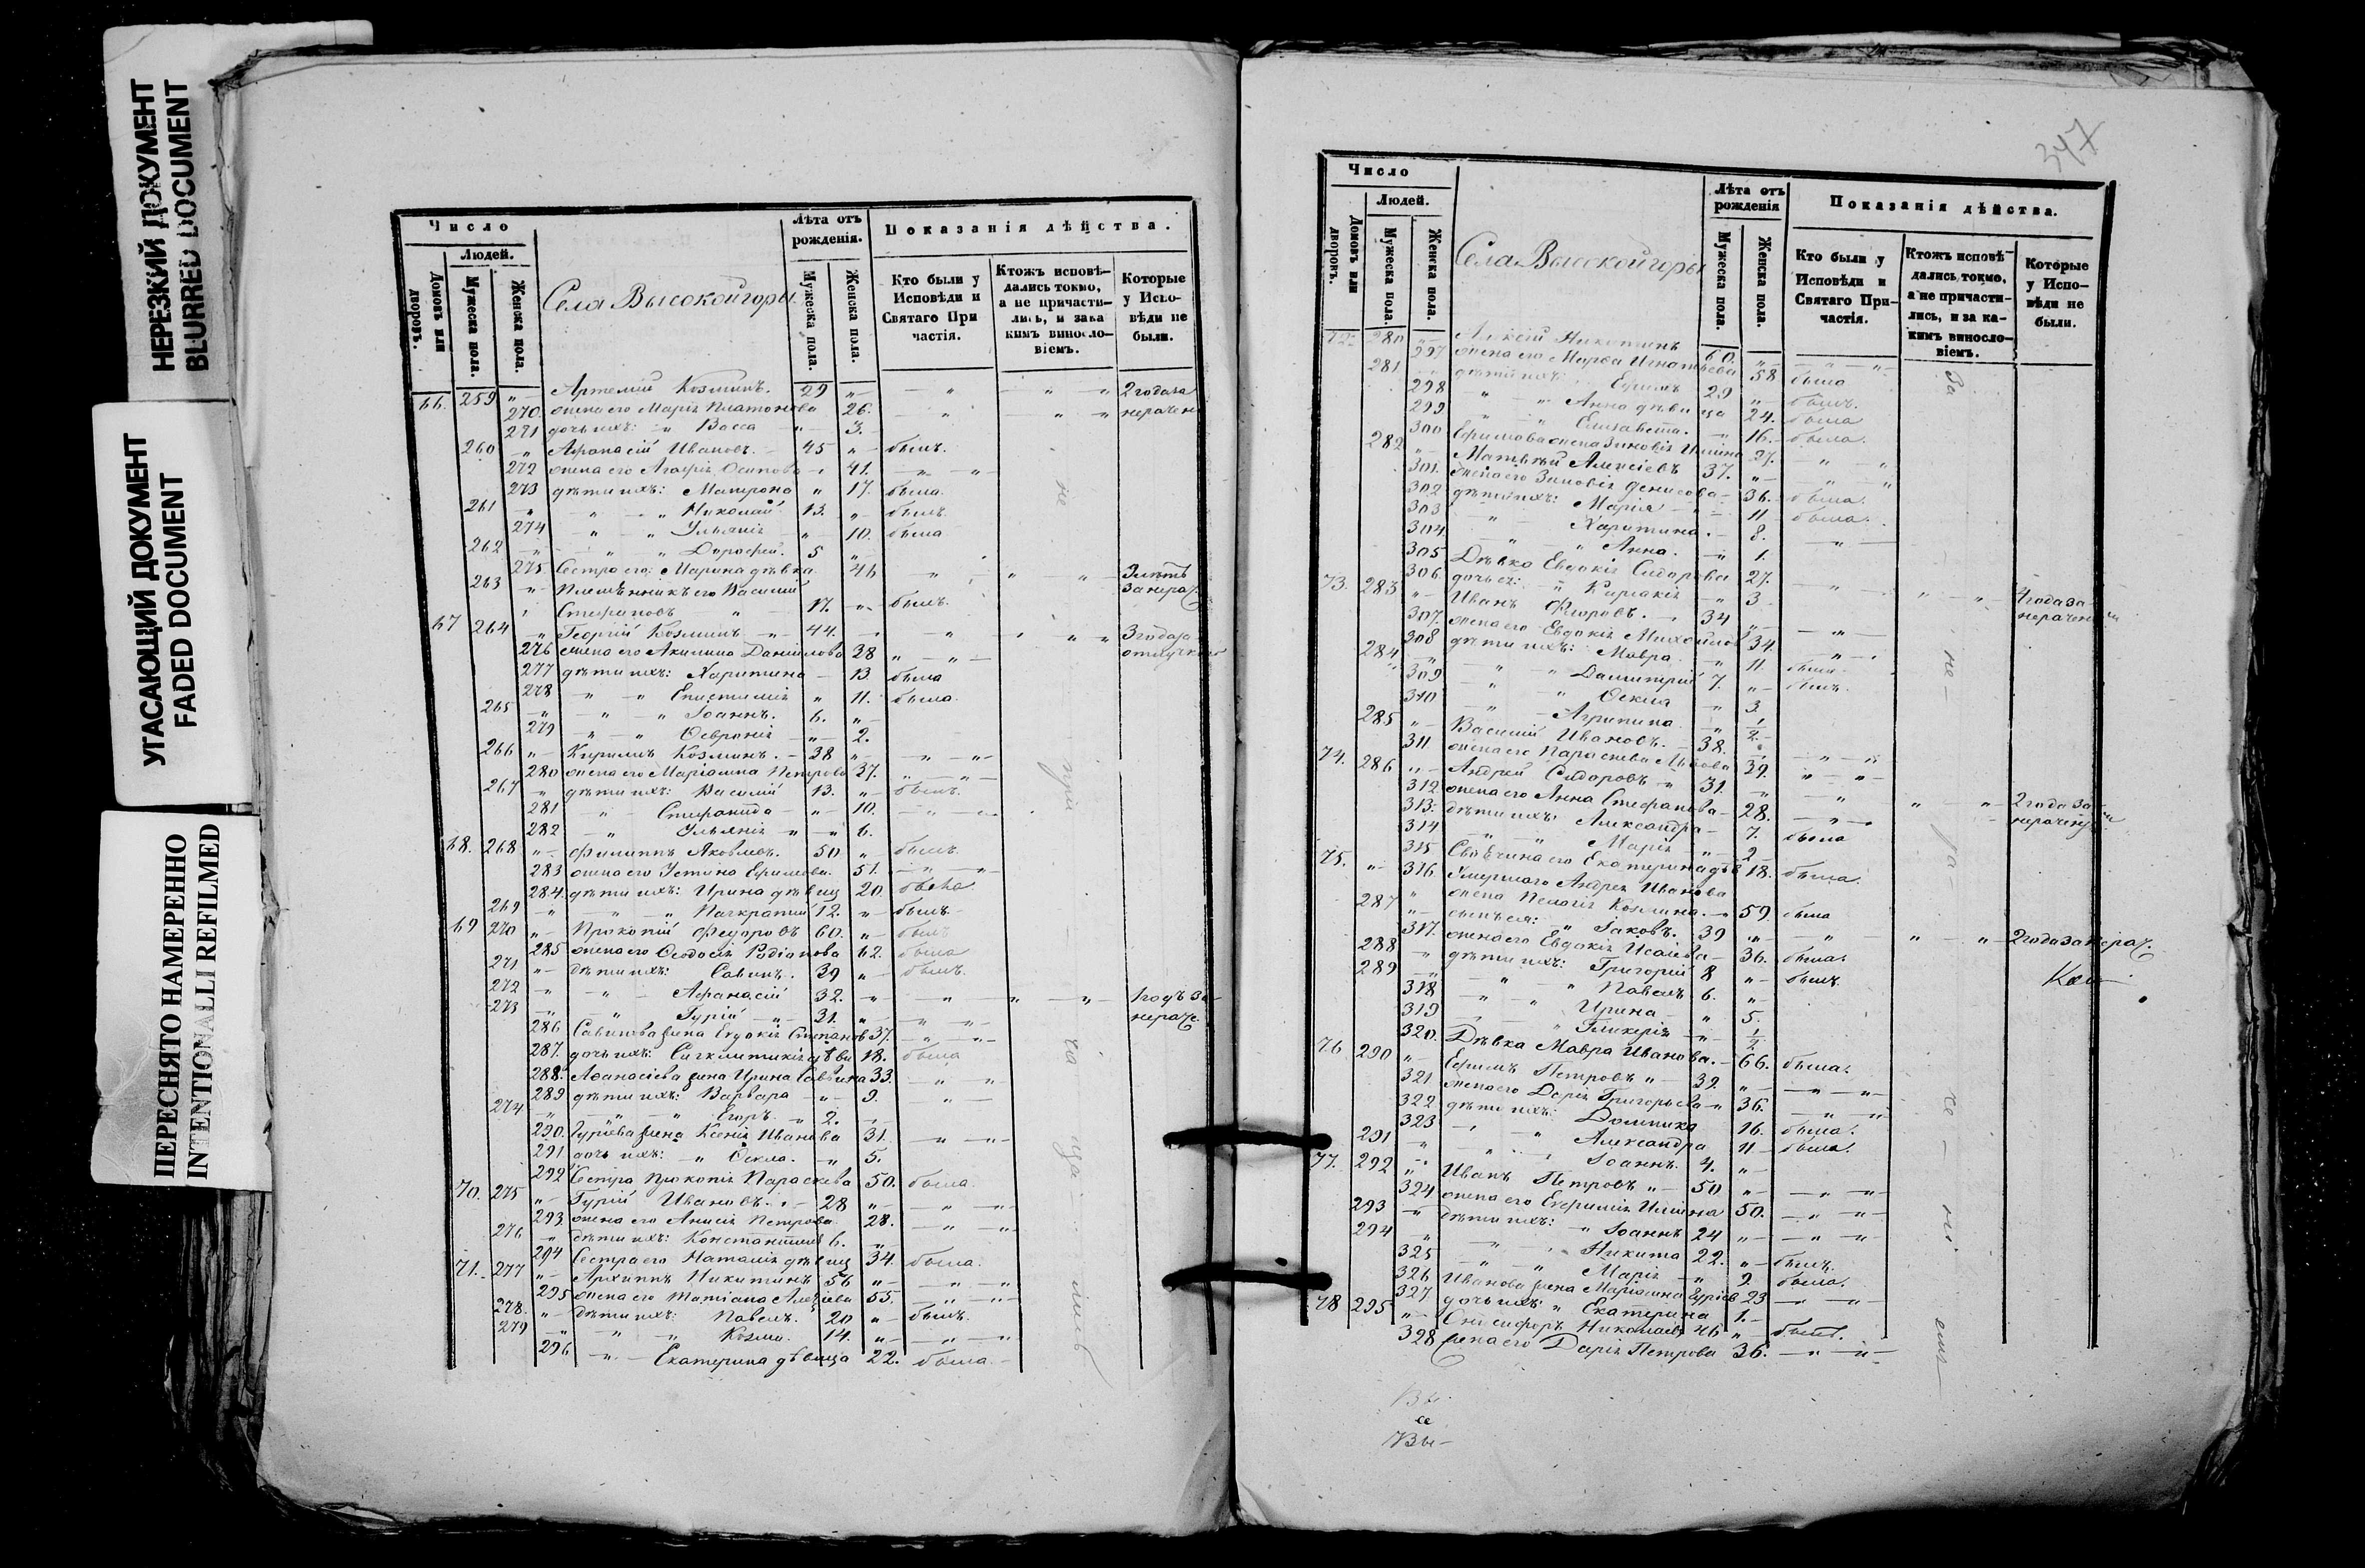 НЕРЕЗКИЙ ДОКУМЕНТ
BLURRED DOCUMENT
УГАСАЮЩИЙ ДОКУМЕНТ
FADED DOCUMENT
ПЕРЕСНЯТО НАМЕРЕННО
INTENTIONALLI REFILMED
Число
Людей.
Домовъ или дворовъ.
Мужеска пола.
Женска пола.
Села Высокойгоры
Лѣта отъ рожденія.
Мужеска пола.
Женска пола.
Показанія дѣйства.
Кто были у Исповѣди и Святаго При частія.
Ктожъ исповѣ-дались токмо, а не причасти-лись, и зака кимъ винословіемъ.
Которые у Испо-вѣди не были.
66. 259 Артемій Козминъ. 29 2 года за
270 жена его Марія Платонова 26. нерачен
271 дочь ихъ: Васса 3.
260 Афонасій Ивановъ. 45 былъ.
272 жена его Агафія Осипова 41.
273 дѣти ихъ: Матрона 17. была.
261 Николай 13. былъ
274 Ульянія 10. была
262 Дорофей. 5
275 Сестра его: Марина дѣвка 46 3 лѣтъ
263 Племѣнникъ его Василій за нерач.
Стефановъ 17. былъ.
67 264 Георгій Козминъ 44. 3 года за
276 жена его Акилина Даніилова 38 отлучкою
277 дѣти ихъ: Харитина 13 была
278 Епистимія 11. была.
265 Іоаннъ. 6.
279 Ѳевронія 2.
266 Кирилъ Козминъ. 38
280 жена его Маріамна Петрова 37.
267 дѣти ихъ: Василій 13. былъ.
281 Стефанида 10.
282 Ульянія 6.
68. 268 Филиппъ Яковлевъ. 50 былъ.
283 жена его Устина Ефимова. 51.
284. дѣти ихъ: Ирина дѣвиц 20 была
269 Панкратій 12. былъ
69 270 Прокопій Федоровъ 60. былъ
285 жена его Ѳеодосія Родіонова 62. была
271 дѣти ихъ: Савинъ. 39 былъ.
272 Афанасій 32. 1 годъ за
273 Гурій 31. нераче.
286 Савинова жена Евдокія Степанов 37.
287. дочь ихъ: Сигклитикія дѣви 18. была
288. Афанасіева жена Ирина Саввина 33.
289 дѣти ихъ: Варвара 9.
274 Егоръ. 2.
290. Гуріева жена Ксенія Иванова 31.
291 дочь ихъ: Ѳекла. 5.
292 Сестра Прокопія Параскева 50. была.
70. 275 Гурій Ивановъ. 28
293 жена его Анисія Петрова 28.
276 дѣти ихъ: Константинъ 6.
294 Сестра его Наталія дѣвиц 34. была.
71. 277 Архиппъ Никитинъ 56
295 жена его Татіана Алексіева 55.
278. дѣти ихъ: Павелъ. 20 былъ.
279 Козма. 14.
296 Екатерина дѣвица 22. была.
347
Число
Людей.
Домовъ или дворовъ.
Мужеска пола.
Женска пола.
Села Высокойгоры
Лѣта отъ рожденія
Мужеска пола.
Женска пола.
Показанія дѣйства.
Кто были у Исповѣди и Святаго При-частія.
Ктожъ исповѣ-дались токмо, а не причасти-лись, и за ка-кимъ винословіемъ.
Которые у Испо-вѣди не были.
72. 280 Алексій Никитинъ 60.
297 жена его Марѳа Игнатьева 58 была
281 дѣти ихъ: Ефимъ 29 былъ.
298 Анна дѣвица 24. была
299 Елисавета. 16. была.
300 Ефимова жена Зиновія Ильина 27.
282 Матвѣй Алексіевъ 37.
301. жена его Зиновія Денисова 36. была.
302 дѣти ихъ: Марія 11 была.
303 Харитина. 8.
304. Анна. 1.
305 Дѣвка Евдокія Сидорова 27.
306. дочь ея: Киріакія 3
73. 283 Иванъ Флоровъ. 34 4 года за нерачен
307. жена его Евдокія Михайлов 34.
308 дѣти ихъ: Мавра 11. была
284 Димитрій 7. былъ.
309 Ѳекла 3
310 Агрипина 1/2
285 Василій Ивановъ. 38.
311 жена его Параскева Львова 39.
74. 286 Андрей Сидоровъ 31. 2 года за
312. жена его Анна Стефанова 28. нераченіем
313. дѣти ихъ: Александра 7. была
314 Марія 2
315 Своячина его Екатерина дѣв 18. была.
75. 316 Умершаго Андрея Иванова
жена Пелагія Козмина. 59. была
287 сынъ ея: Іаковъ. 39 2 года за нерач.
317. жена его Евдокія Исаіева 36. была
288 дѣти ихъ: Григорій 8 былъ
289 Павелъ 6.
318 Ирина 5.
319 Гликерія 1/2
320. Дѣвка Мавра Иванова. 66. была.
76 290 Ефимъ Петровъ 39.
321 жена его Дарія Григорьева 36.
322. дѣти ихъ: Домника 16. была.
323 Александра 11 была.
291 Іоаннъ. 4.
77. 292 Иванъ Петровъ 50
324 жена его Евфимія Ильина 50.
293 дѣти ихъ: Іоаннъ 24
294 Никита 22. былъ.
325 Марія 9. была.
326 Иванова жена Маріамна Гуріев 23
327 дочь ихъ: Екатерина 1.
78 295 Онисифоръ Николаевъ 46 былъ.
328 жена его Дарія Петрова 36.
Вы-